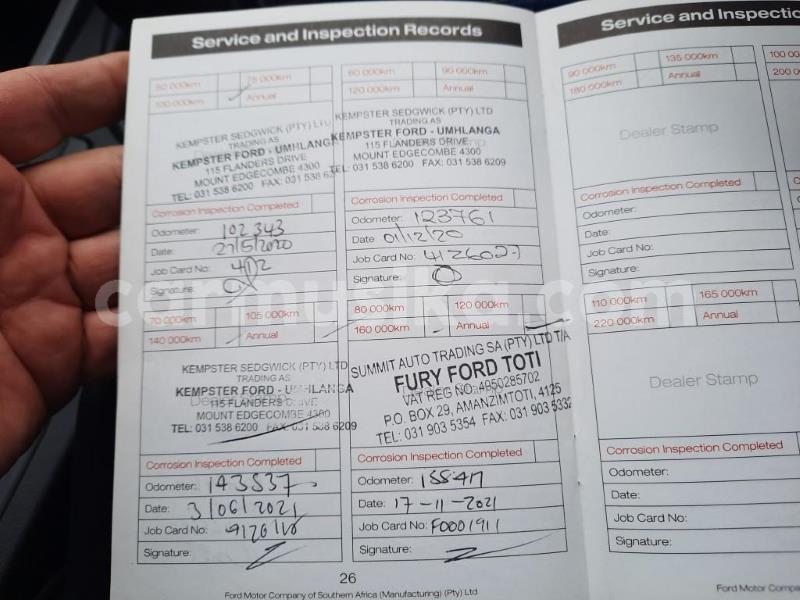 Service and Inspection Records
50 000km
75 000km
100 000km
Annual
KEMPSTER SEDGWICK (PTY) LTD
TRADING AS
KEMPSTER FORD - UMHLANGA
115 FLANDERS DRIVE
MOUNT EDGECOMBE 4300
TEL: 031 538 6200 FAX: 031 538 62
Corrosion Inspection Completed
Odometer: 102 343
Date: 27/5/2020
Job Card No: 412
Signature:
60 000km
90 000km
120 000km
Annual
KEMPSTER SEDGWICK (PTY) LTD
TRADING AS
KEMPSTER FORD - UMHLANGA
115 FLANDERS DRIVE
MOUNT EDGECOMBE 4300
TEL: 031 538 6200 FAX: 031 538 6209
Corrosion Inspection Completed
Odometer: 123761
Date 01/12/20
Job Card No:
Signature:
70 000km
105 000km
140 000km
Annual
KEMPSTER SEDGWICK (PTY) LTD
TRADING AS
KEMPSTER FORD - UMHLANGA
115 FLANDERS DRIVE
MOUNT EDGECOMBE 4300
TEL: 031 538 6200 FAX: 031 538 6209
Corrosion Inspection Completed
Odometer: 143537
Date: 3/06/2021
Job Card No:
Signature:
80 000km
120 000km
160 000km
Annual
SUMMIT AUTO TRADING SA (PTY) LTD T/A
FURY FORD TOTI
VAT REG NO: 4950285702
P.O. BOX 29, AMANZIMTOTI, 4125
TEL: 031 903 5354 FAX: 031 903 5332
Corrosion Inspection Completed
Odometer: 155417
Date: 17-11-2021
Job Card No: F0001911
Signature:
26
Ford Motor Company of Southern Africa (Manufacturing) (Pty) Ltd
Service and Inspectio
90 000km
135 000km
180 000km
Annual
Dealer Stamp
Corrosion Inspection Completed
Odometer:
Date:
Job Card No:
Signature:
110 000km
165 000km
220 000km
Annual
Dealer Stamp
Corrosion Inspection Completed
Odometer:
Date:
Job Card No:
Signature:
Ford Motor Compan
100 00
200 00
carmusika.com